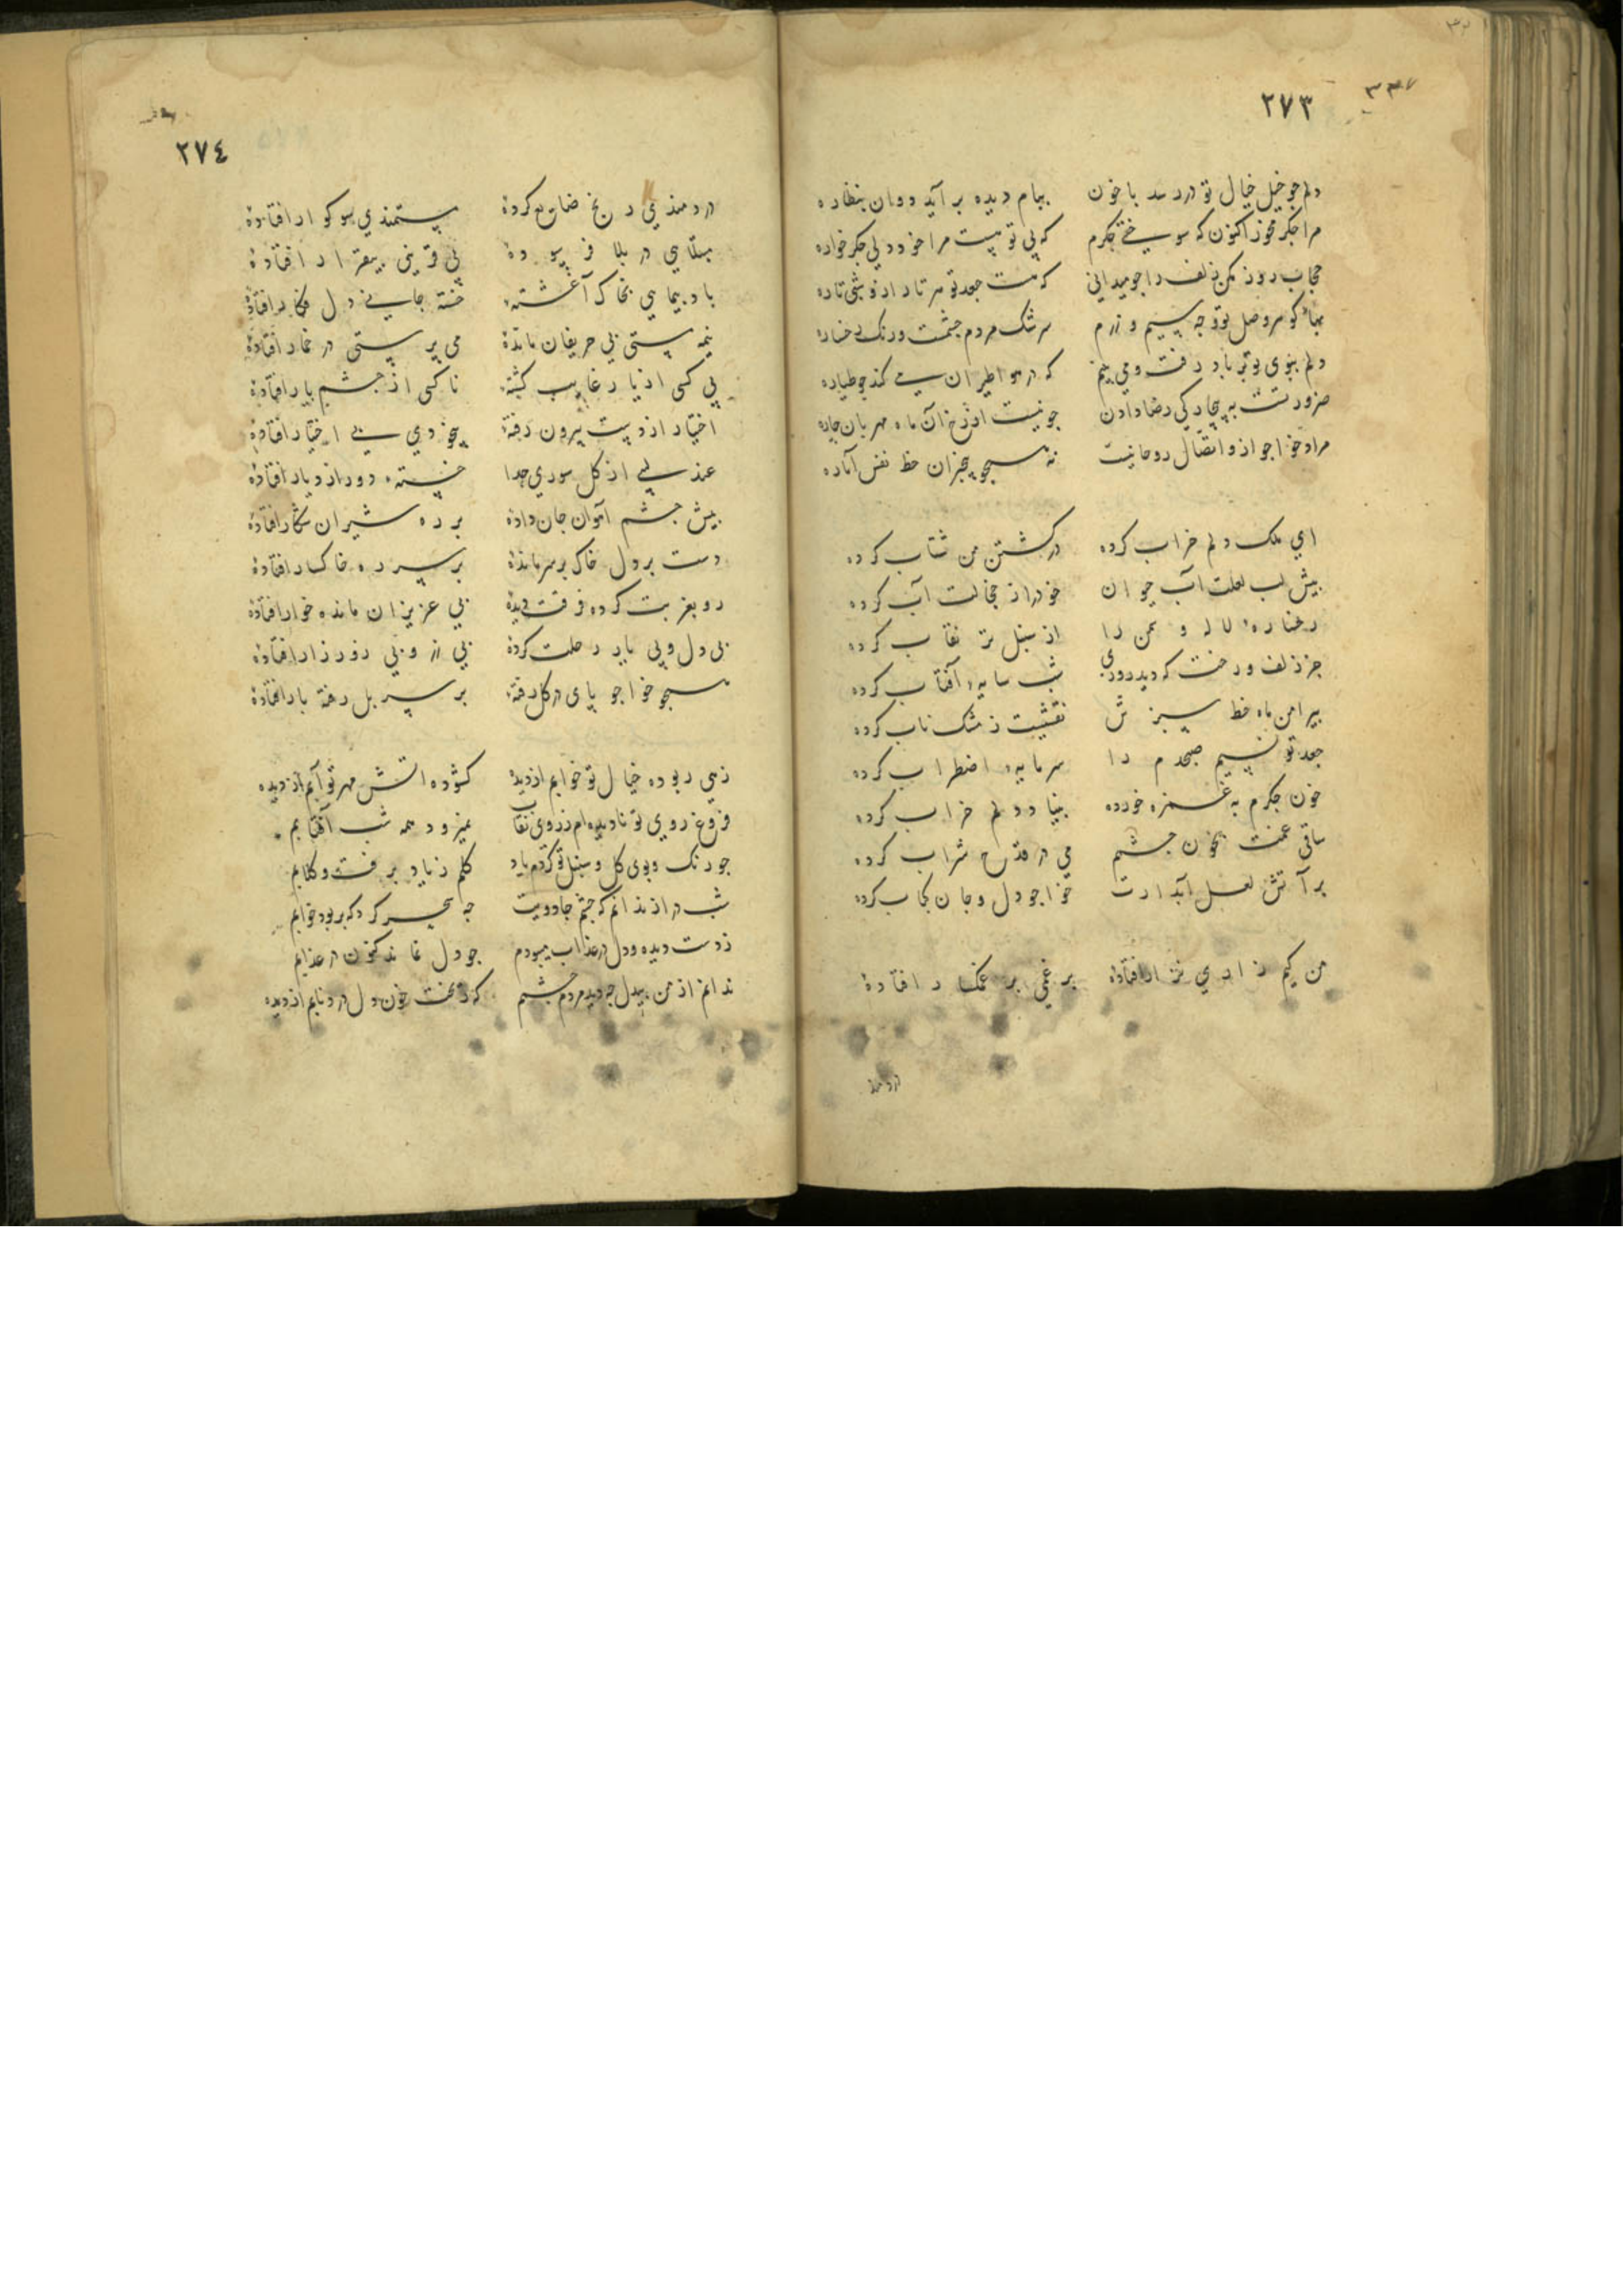 ٢٧٣
دلم جو خیل خیال تو در رسد با خون ببام دیده بر آید دوان بنظاره
مرا جکر مخور اکنون که سوختی جکرم که بی تو نیست مرا خود دلی جکر خواره
حجاب روز مکن زلف را جو میدانی که هست جعد تو هر تار ازو شبی تاره
بهاء کوهر وصل تو وجه سیم و زرم سرشک مردم جشمست و رنک رخساره
دلم ببوی تو بر باد رفت و می بینم که در هوا طیران میکند جو طیاره
ضرورتست به بیچارکی رضا دادن جو نیست از رخ آن ماه مهربان جاره
مراد خواجو ازو اتصال روحانیست نه همجو بیخبران حظ نفس اماره
ای ملک دلم خراب کرده در کشتن من شتاب کرده
بیش لب لعلت آب حیوان خود را ز خجالت آب کرده
رخساره لاله و سمن را از سنبل تر نقاب کرده
جز زلف و رخت که دید روزی شب سایه آفتاب کرده
بیرامن ماه خط سبزش نقشیست ز مشک ناب کرده
جعد تو نسیم صبحدم را سرمایه اضطراب کرده
خون جکرم به غمزه خورده بنیاد دلم خراب کرده
ساقی غمت بخون جشمم می در قدح شراب کرده
بر آتش لعل آبدارت خواجو دل و جان کباب کرده
من کیم زاری نزار افتاده بر غمی بر غمکسار افتاده
٢٧٤
دردمندی رنج ضایع کرده مستمندی سوکوار افتاده
مبتلایی در بلا فرسوده بی قرینی بیقرار افتاده
باد بیمایی بخاک آغشته خسته جانی دل فکار افتاده
نیمه مستی بی حریفان مانده می برستی در خمار افتاده
بی کسی از یار غایب کشته ناکسی از جشم یار افتاده
اختیار از دست بیرون رفته بیخودی بی اختیار افتاده
عندلیبی از کل سوری جدا خسته دور از دیار افتاده
بیش جشم آهوان جان داده بر ره شیران شکار افتاده
دست بر دل خاک بر سر مانده بر سر ره خاکسار افتاده
رو بغربت کرده فرقت دیده بی عزیزان مانده خوار افتاده
بی دل و بی یار رحلت کرده بی زر و بی زور زار افتاده
همجو خواجو بای در کل رفته بر سر بل رخته بار افتاده
زهی ربوده خیال تو خوابم از دیده کشوده آتش مهر تو آبم از دیده
فروغ روی تو نادیده ام ز زیر نقاب نمیرود همه شب آفتابم
جو رنک و بوی کل و سنبل تو کردم یاد کلم ز یاد برفت و کلابم
شب دراز ندانم که جشم جادویت جه سحر کرد که بربود خوابم
ز دست دیده و دل در عذاب میبودم جو دل نماند کنون در عذابم
ندانم از من بیدل جه دید مردم جشم که ریخت خون دل دردنابم از دیده